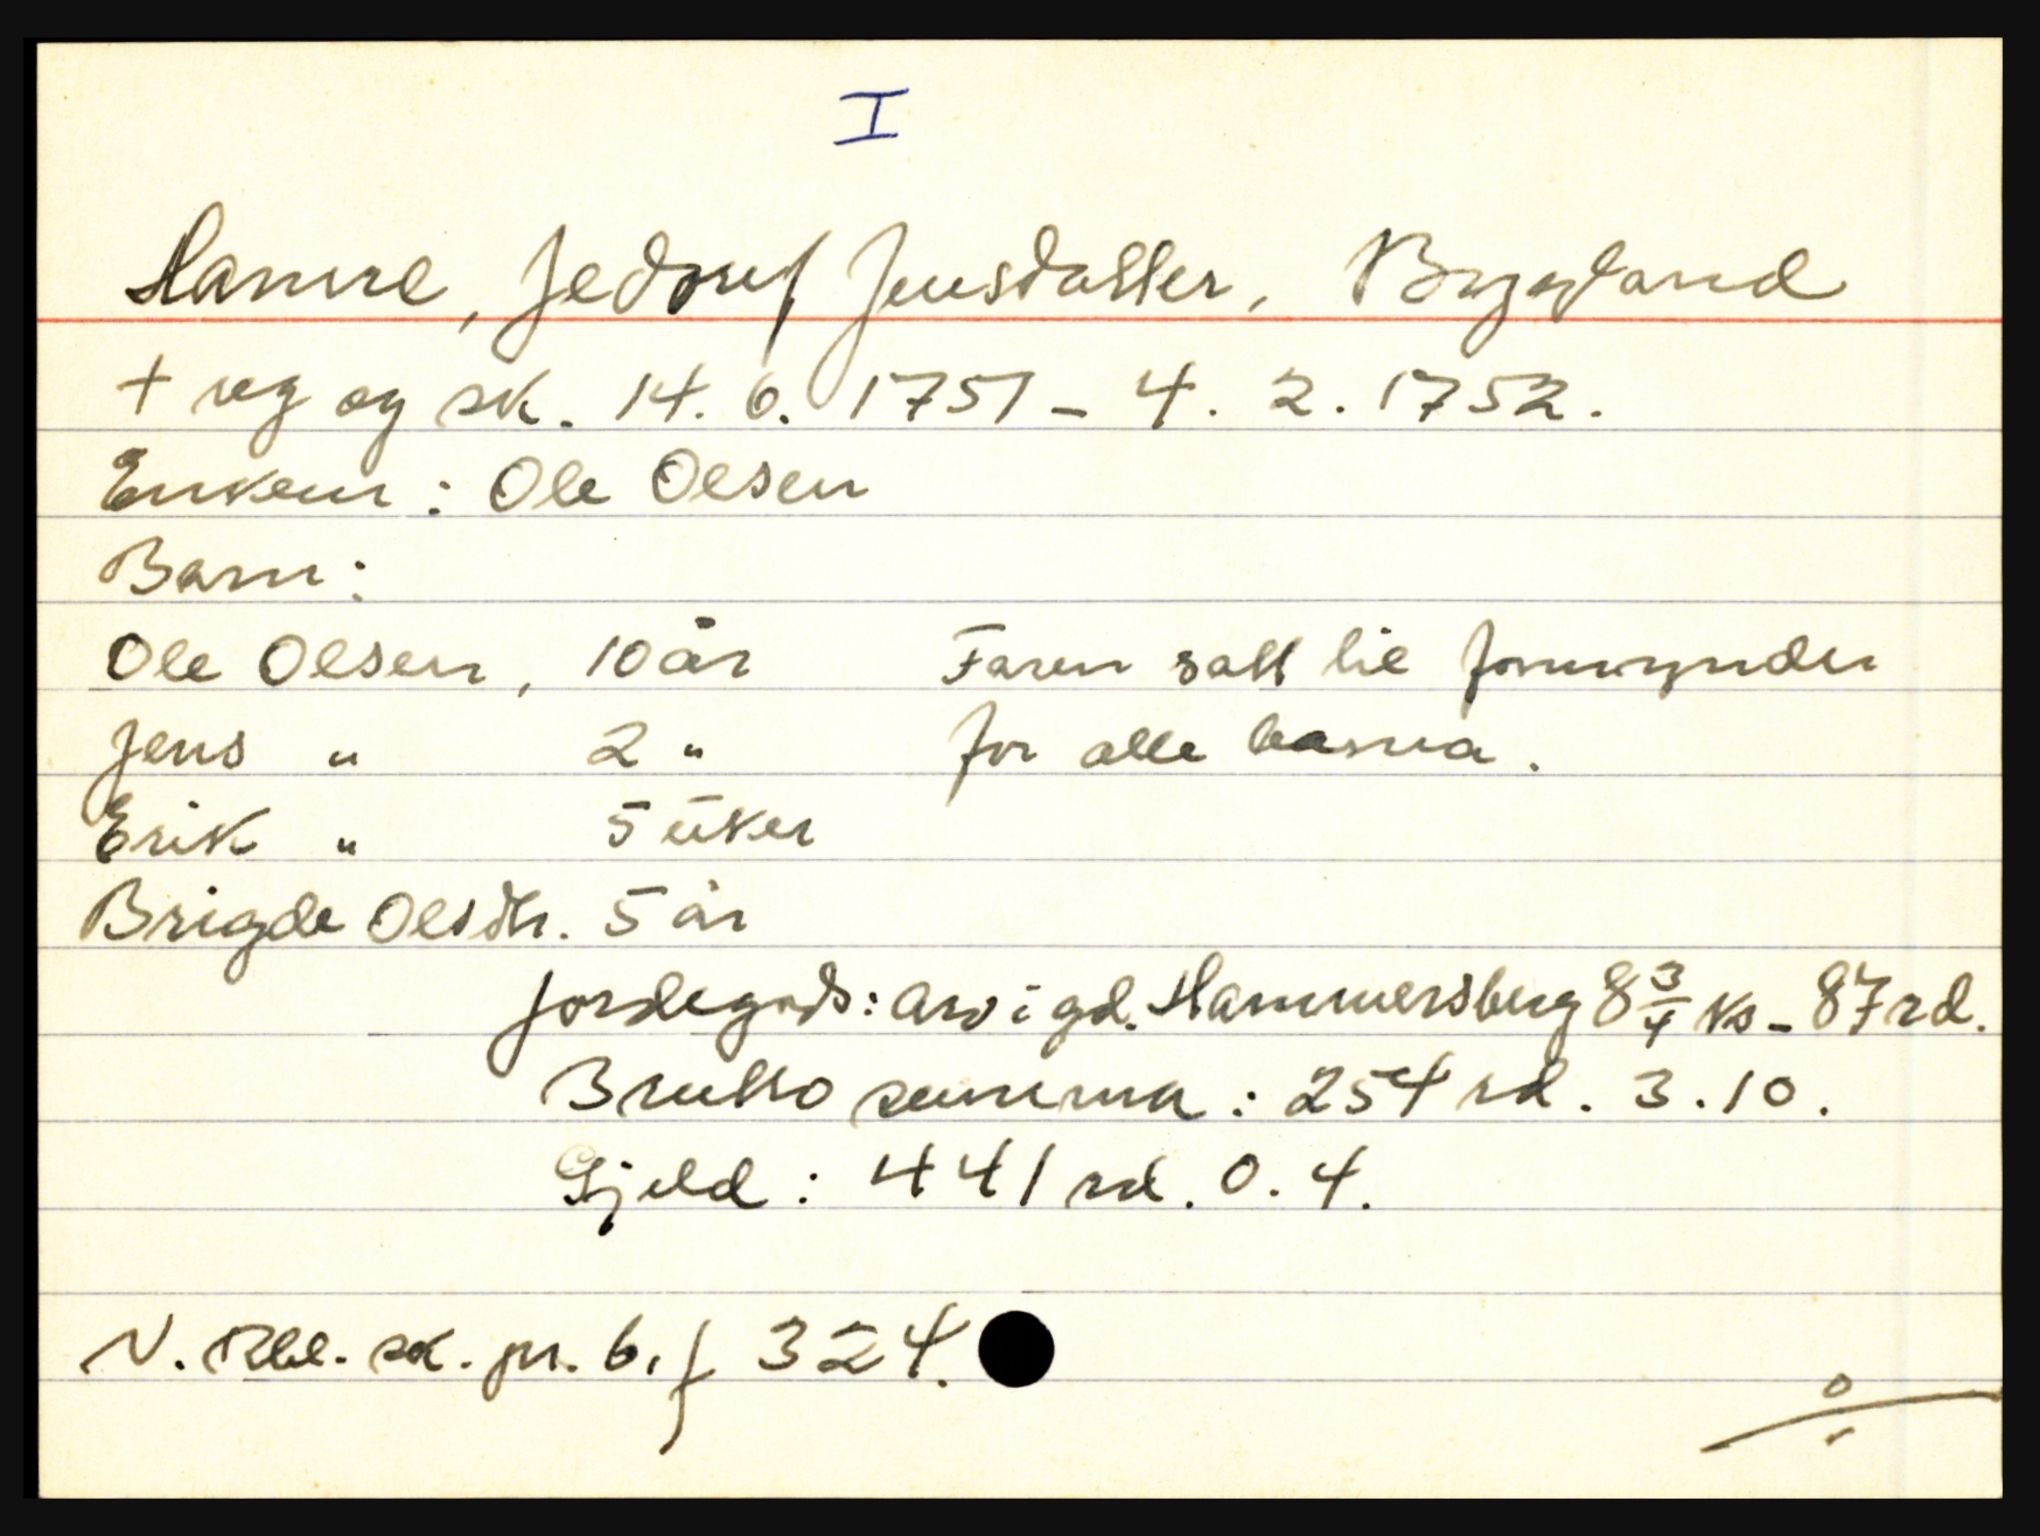 I
Hamre, Jensdatter, Bygland
+ reg og sk. 14. 6. 1751 - 4. 2. 1752.
Enkem: Ole Olsen
Barn:
Ole Olsen, 10 år Faren satt til formynder
Jens " 2 " for alle barna.
Erik " 5 uker
Brigde Olsdtr. 5 år
Jordegods: arv i gd. Hammersberg 8 3/4 ks - 87 rd.
Brutto summa: 254 rd. 3.10.
Gjeld: 441 rd. 0. 4.
N. Rbl. sk. pr. 6, f 324.